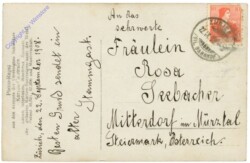 An das
sehrwerte
Fräulein
Rosa
Seebacher
Mitterdorf im Mürztal
Steiermark, Österreich.
Zürich, den 22. September 1908.
Besten Gruß sendet ein
alter Stammgast.